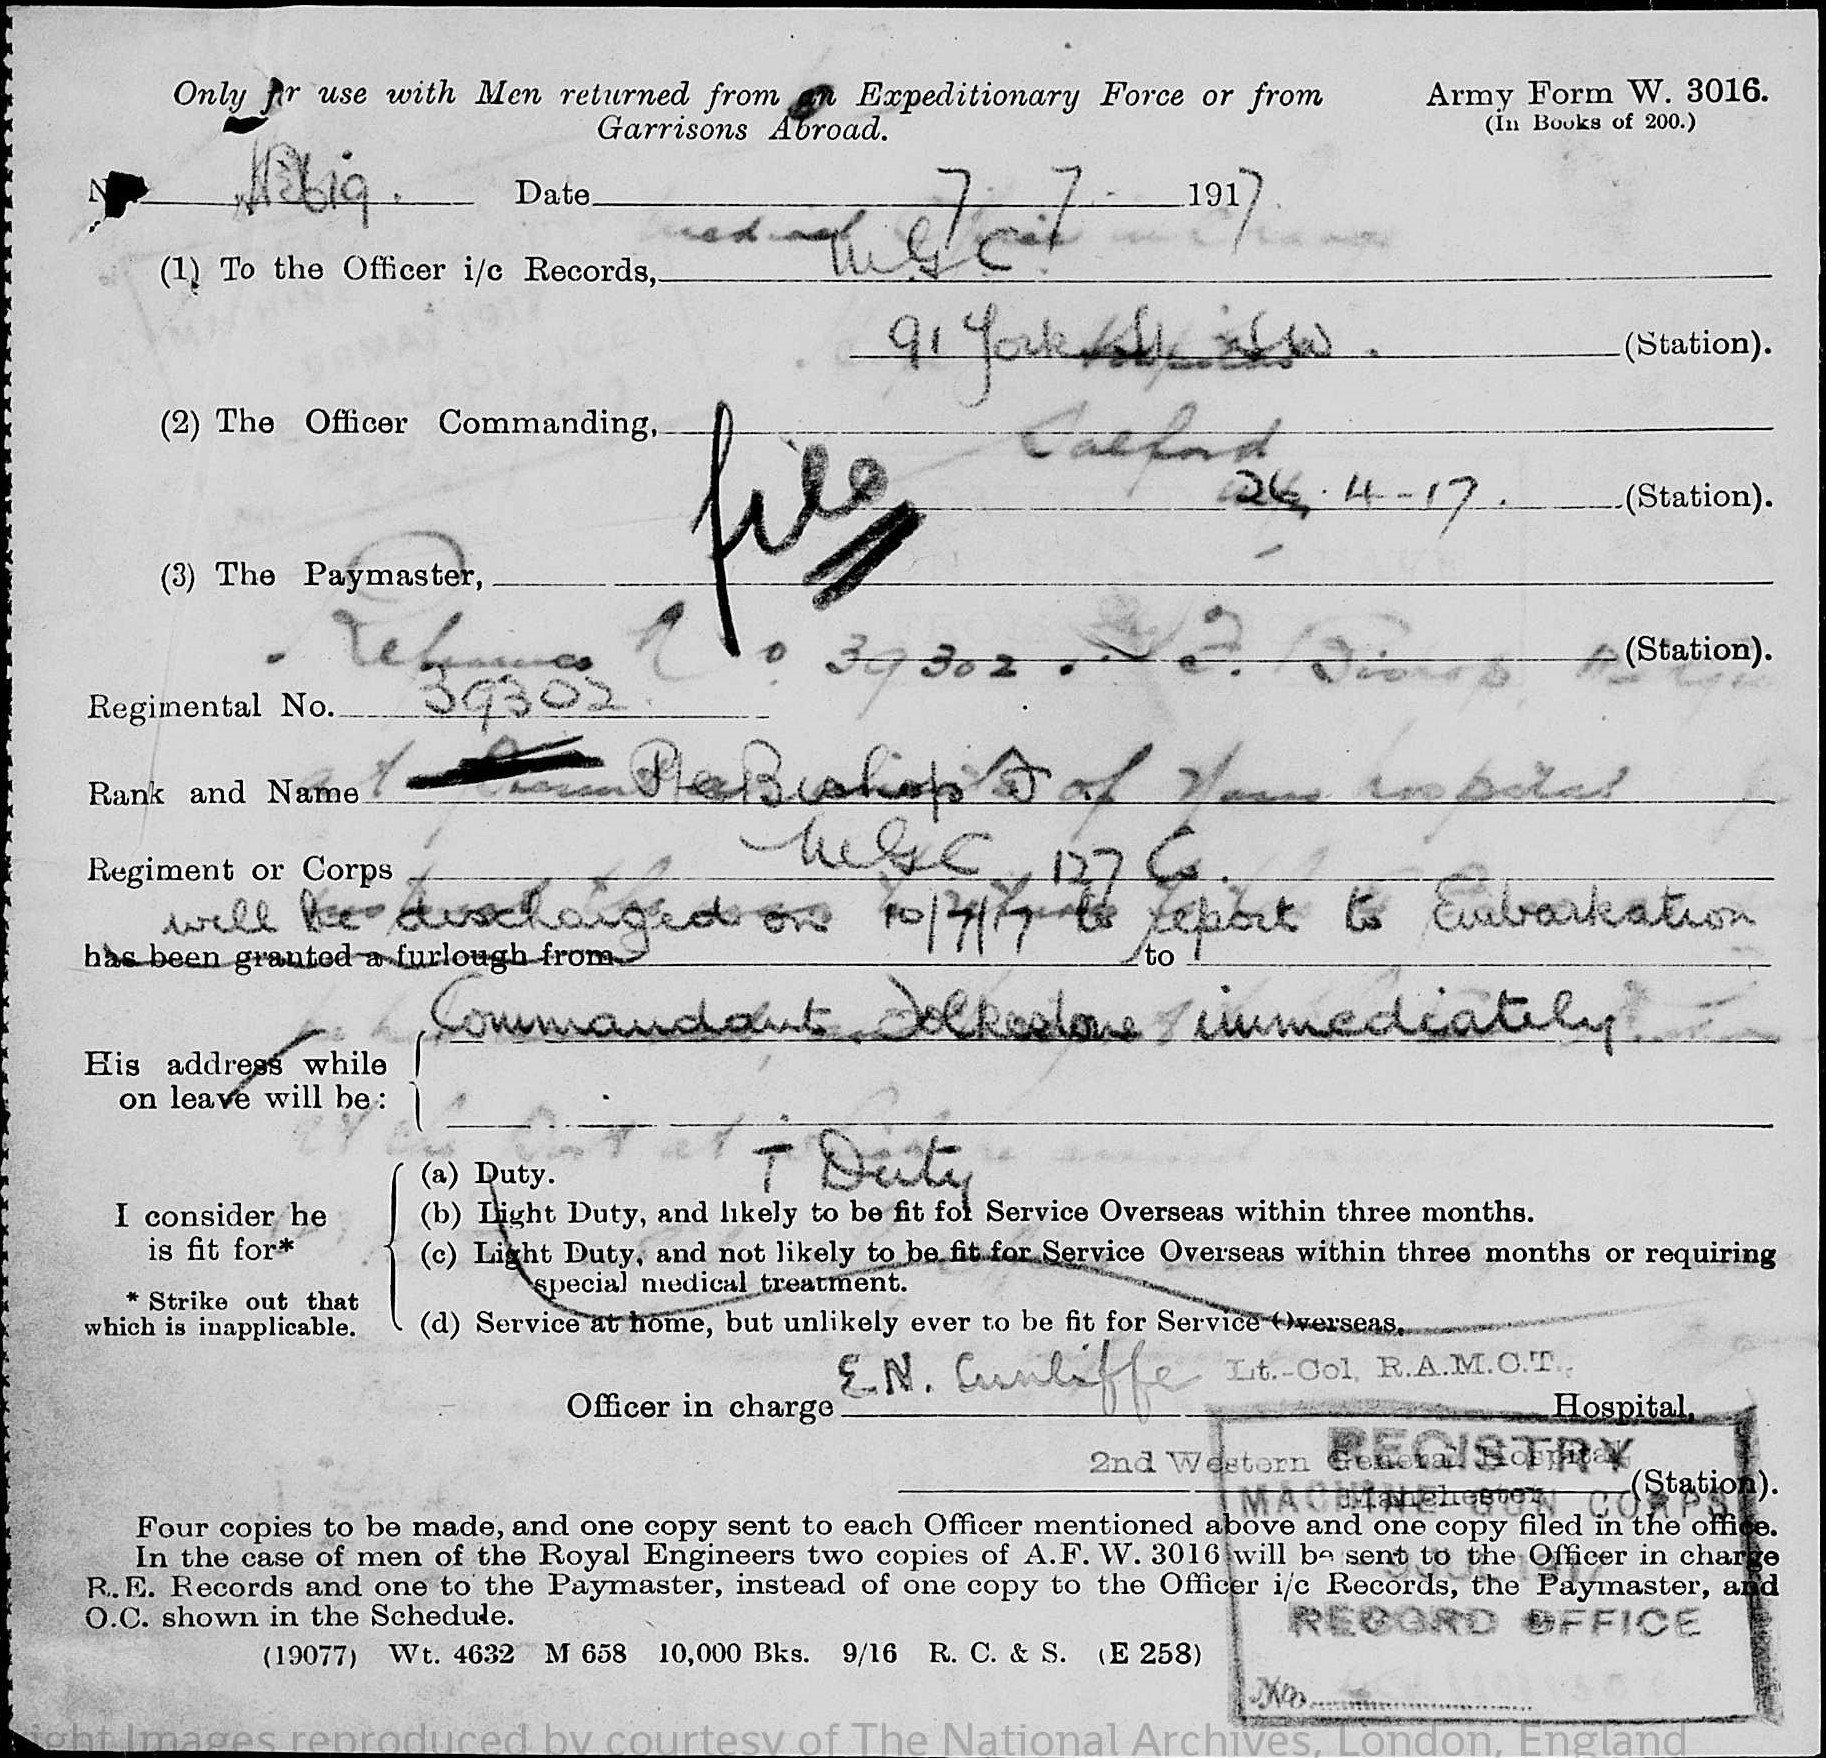 Only for use with Men returned from an Expeditionary Force or from
Garrisons Abroad.
Army Form W. 3016.
(In Books of 200.)
Date 7 . 7 . 1917.
(1) To the Officer i/c Records, M.G.C.
91 York (Station).
(2) The Officer Commanding,
file
24.4-17. (Station).
(3) The Paymaster,
39302 (Station).
Regimental No. 39302.
Rank and Name Pte Bishop of hospital
Regiment or Corps MGC 127 Co.
will be discharged on 10/7/17 to report to Embarkation
has been granted a furlough from to
Commandant Folkestone immediately.
His address while
on leave will be:
T Duty
I consider he
is fit for*
* Strike out that
which is inapplicable.
(a) Duty.
(b) Light Duty, and likely to be fit for Service Overseas within three months.
(c) Light Duty, and not likely to be fit for Service Overseas within three months or requiring
special medical treatment.
(d) Service at home, but unlikely ever to be fit for Service Overseas.
E.N. Cunliffe Lt.-Col. R.A.M.C.T.
Officer in charge Hospital,
2nd Western General Hospital
Manchester (Station).
REGISTRY
MACHINE GUN CORPS
RECORD OFFICE
No
Four copies to be made, and one copy sent to each Officer mentioned above and one copy filed in the office.
In the case of men of the Royal Engineers two copies of A.F. W. 3016 will be sent to the Officer in charge
R.E. Records and one to the Paymaster, instead of one copy to the Officer i/c Records, the Paymaster, and
O.C. shown in the Schedule.
(19077) Wt. 4632 M 658 10,000 Bks. 9/16 R. C. & S. (E 258)
ight Images reproduced by courtesy of The National Archives, London, England